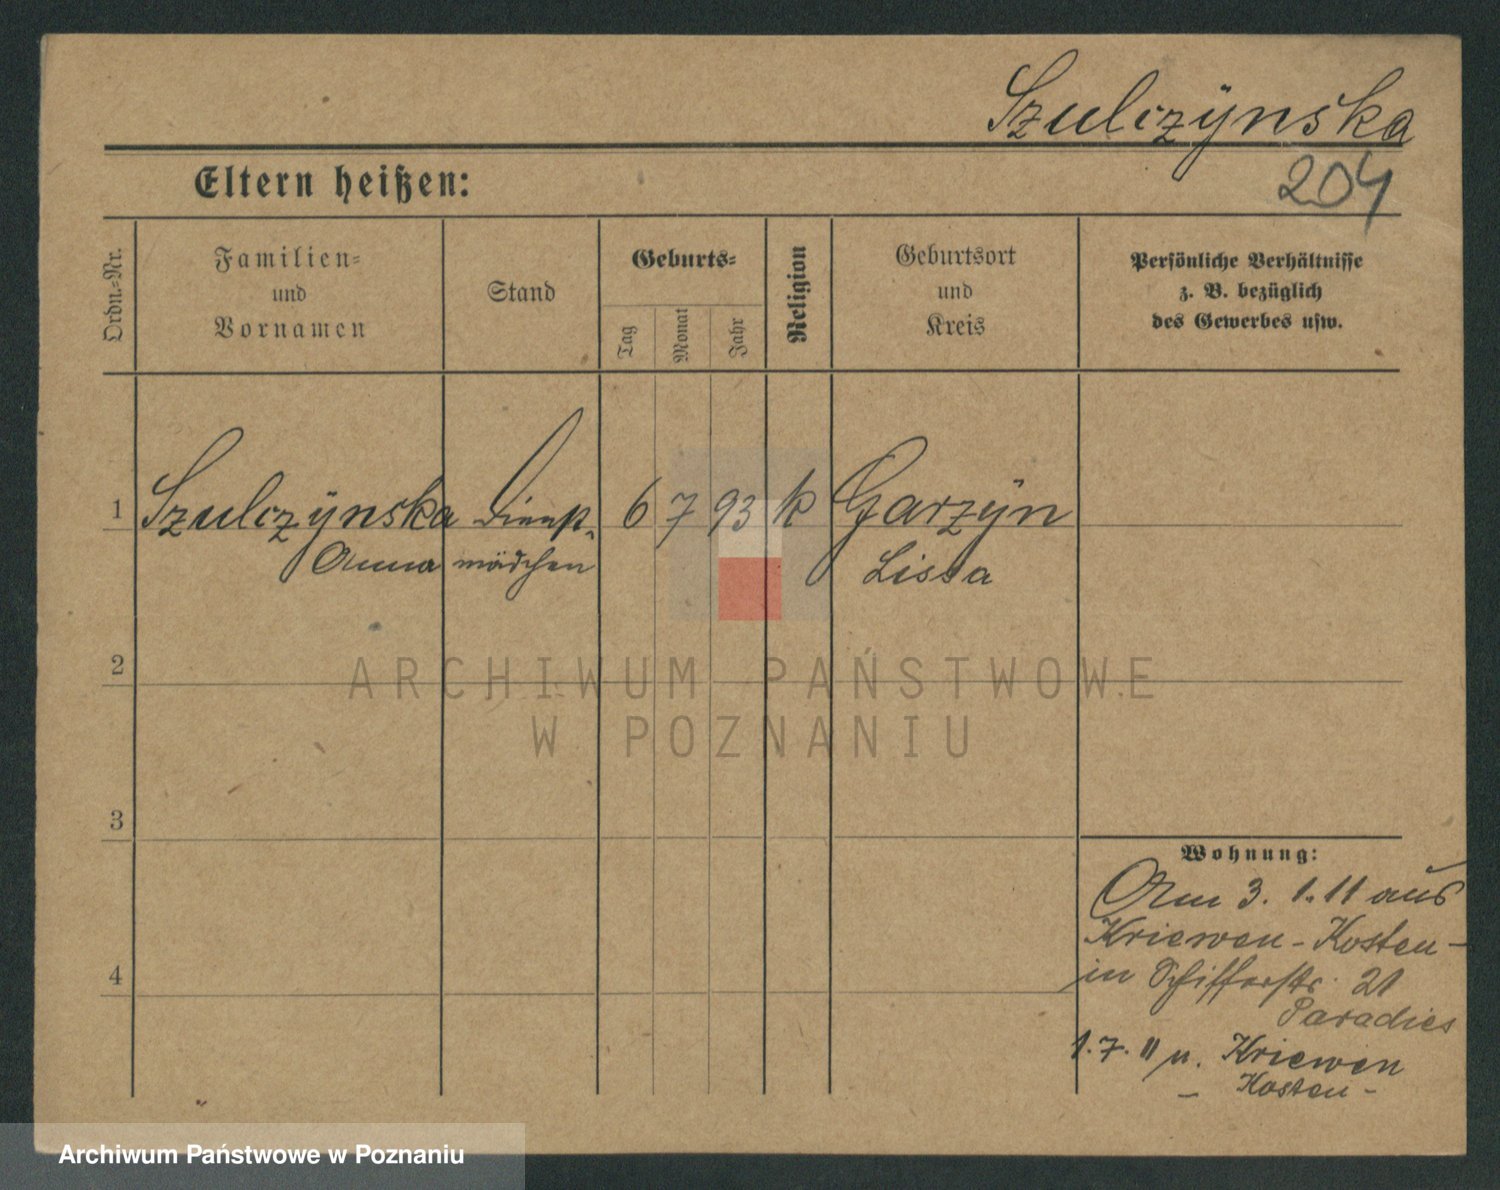 Szulczÿnska
204
Eltern heißen:
Ordn.-Nr.
Familien-
und
Vornamen
Stand
Geburts-
Tag
Monat
Jahr
Religion
Geburtsort
und
Kreis
Persönliche Verhältnisse
z. B. bezüglich
des Gewerbes usw.
1 Szulczÿnska Dienst- 6 7 93 k Garzÿn
Anna mädchen Lissa
2
3
4
Wohnung:
Am 3. 1. 11 aus
Kriewen - Kosten -
in Schifferstr. 21
Paradies
1. 7. 11 n. Kriewen
- Kosten -
ARCHIWUM PAŃSTWOWE
W POZNANIU
Archiwum Państwowe w Poznaniu